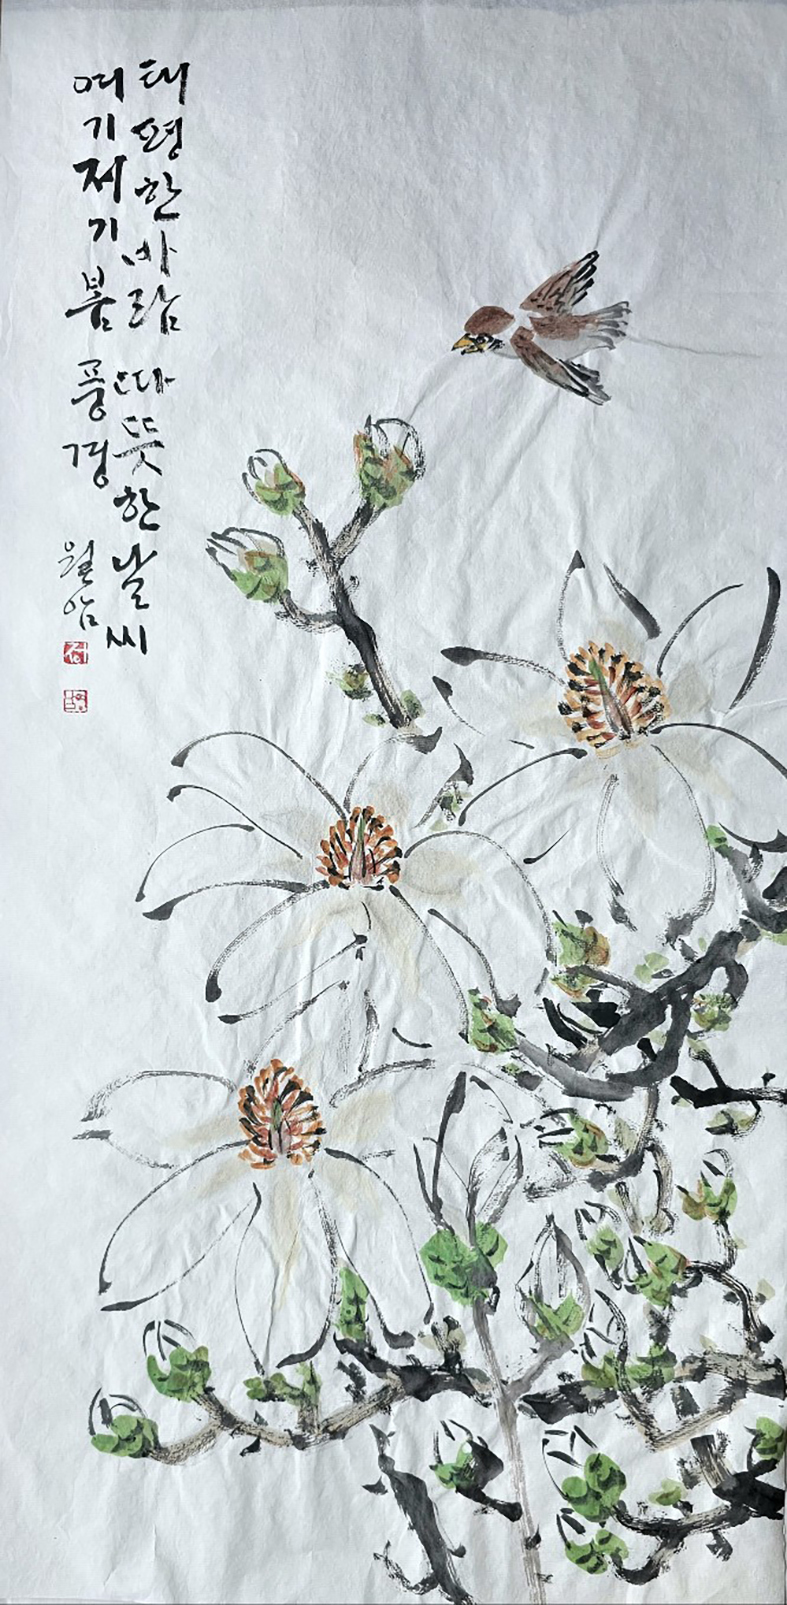 태평한 바람 따뜻한 날씨
여기저기 봄 풍경
월암